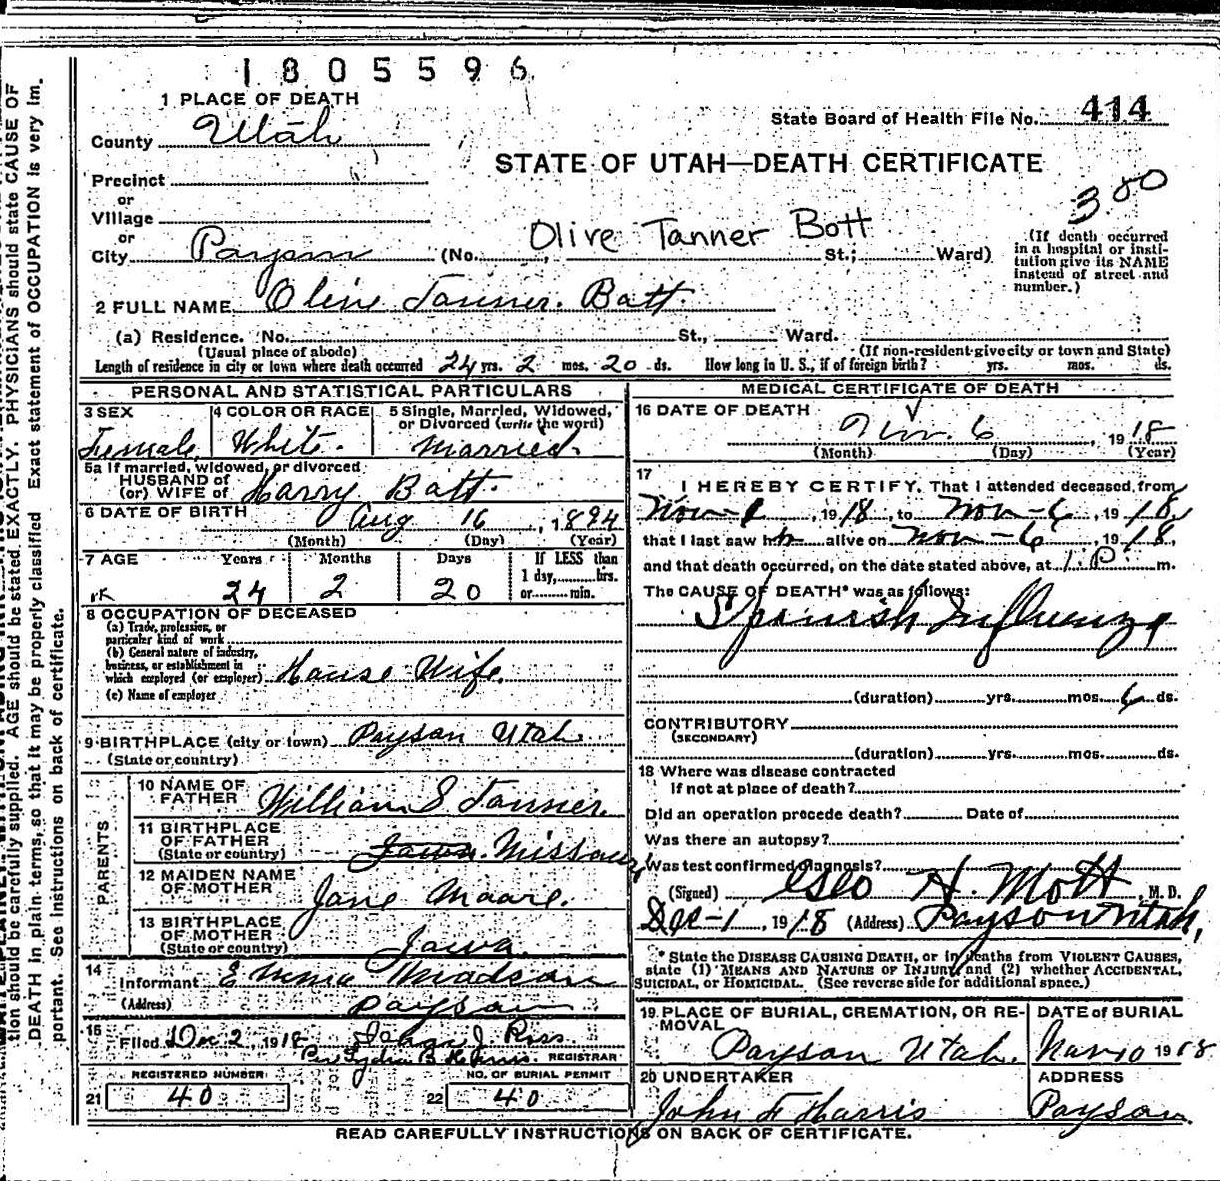 1805596
1 PLACE OF DEATH
State Board of Health File No. 414
County Utah
STATE OF UTAH—DEATH CERTIFICATE
Precinct
or
Village
or
3 00
Olive Tanner Bott
City Payson (No. St.; Ward)
(If death occurred
in a hospital or insti-
tution give its NAME
instead of street and
number.)
2 FULL NAME Olive Tanner Batt
(a) Residence. No. St., Ward.
(Usual place of abode) (If non-resident give city or town and State)
Length of residence in city or town where death occurred 24 yrs. 2 mos. 20 ds. How long in U. S., if of foreign birth? yrs. mos. ds.
PERSONAL AND STATISTICAL PARTICULARS
3 SEX 4 COLOR OR RACE 5 Single, Married, Widowed,
or Divorced (write the word)
Female White Married
5a If married, widowed, or divorced
HUSBAND of
(or) WIFE of Harry Batt
6 DATE OF BIRTH Aug 16, 1894
(Month) (Day) (Year)
7 AGE Years Months Days If LESS than
1 day, hrs.
24 2 20 or min.
8 OCCUPATION OF DECEASED
(a) Trade, profession, or
particular kind of work
(b) General nature of industry,
business, or establishment in
which employed (or employer) House Wife
(c) Name of employer
9 BIRTHPLACE (city or town) Payson Utah
(State or country)
PARENTS
10 NAME OF
FATHER William S Tanner
11 BIRTHPLACE
OF FATHER
(State or country) Iowa Missouri
12 MAIDEN NAME
OF MOTHER Jane Moore
13 BIRTHPLACE
OF MOTHER
(State or country) Iowa
14
Informant Emma
(Address) Payson
15
Filed Dec 2, 1918 J. Ross
Per Lydia B. REGISTRAR
REGISTERED NUMBER NO. OF BURIAL PERMIT
21 40 22 40
MEDICAL CERTIFICATE OF DEATH
16 DATE OF DEATH
Nov. 6, 1918
(Month) (Day) (Year)
17
I HEREBY CERTIFY, That I attended deceased from
Nov-1, 1918, to Nov-6, 1918,
that I last saw h alive on Nov-6, 1918,
and that death occurred, on the date stated above, at 1 P. m.
The CAUSE OF DEATH* was as follows:
Spanish Influenza
(duration) yrs. mos. 6 ds.
CONTRIBUTORY
(SECONDARY)
(duration) yrs. mos. ds.
18 Where was disease contracted
If not at place of death?
Did an operation precede death? Date of
Was there an autopsy?
Was test confirmed diagnosis?
(Signed) Geo H. Mott, M. D.
Dec-1, 1918 (Address) Payson Utah,
* State the DISEASE CAUSING DEATH, or in deaths from VIOLENT CAUSES,
state (1) MEANS AND NATURE OF INJURY, and (2) whether ACCIDENTAL,
SUICIDAL, or HOMICIDAL. (See reverse side for additional space.)
19 PLACE OF BURIAL, CREMATION, OR RE-
MOVAL
DATE of BURIAL
Payson Utah. Nov 10 1918
20 UNDERTAKER ADDRESS
John F Harris Payson
READ CAREFULLY INSTRUCTIONS ON BACK OF CERTIFICATE.
tion should be carefully supplied. AGE should be stated EXACTLY. PHYSICIANS should state CAUSE OF
DEATH in plain terms, so that it may be properly classified. Exact statement of OCCUPATION is very im-
portant. See instructions on back of certificate.